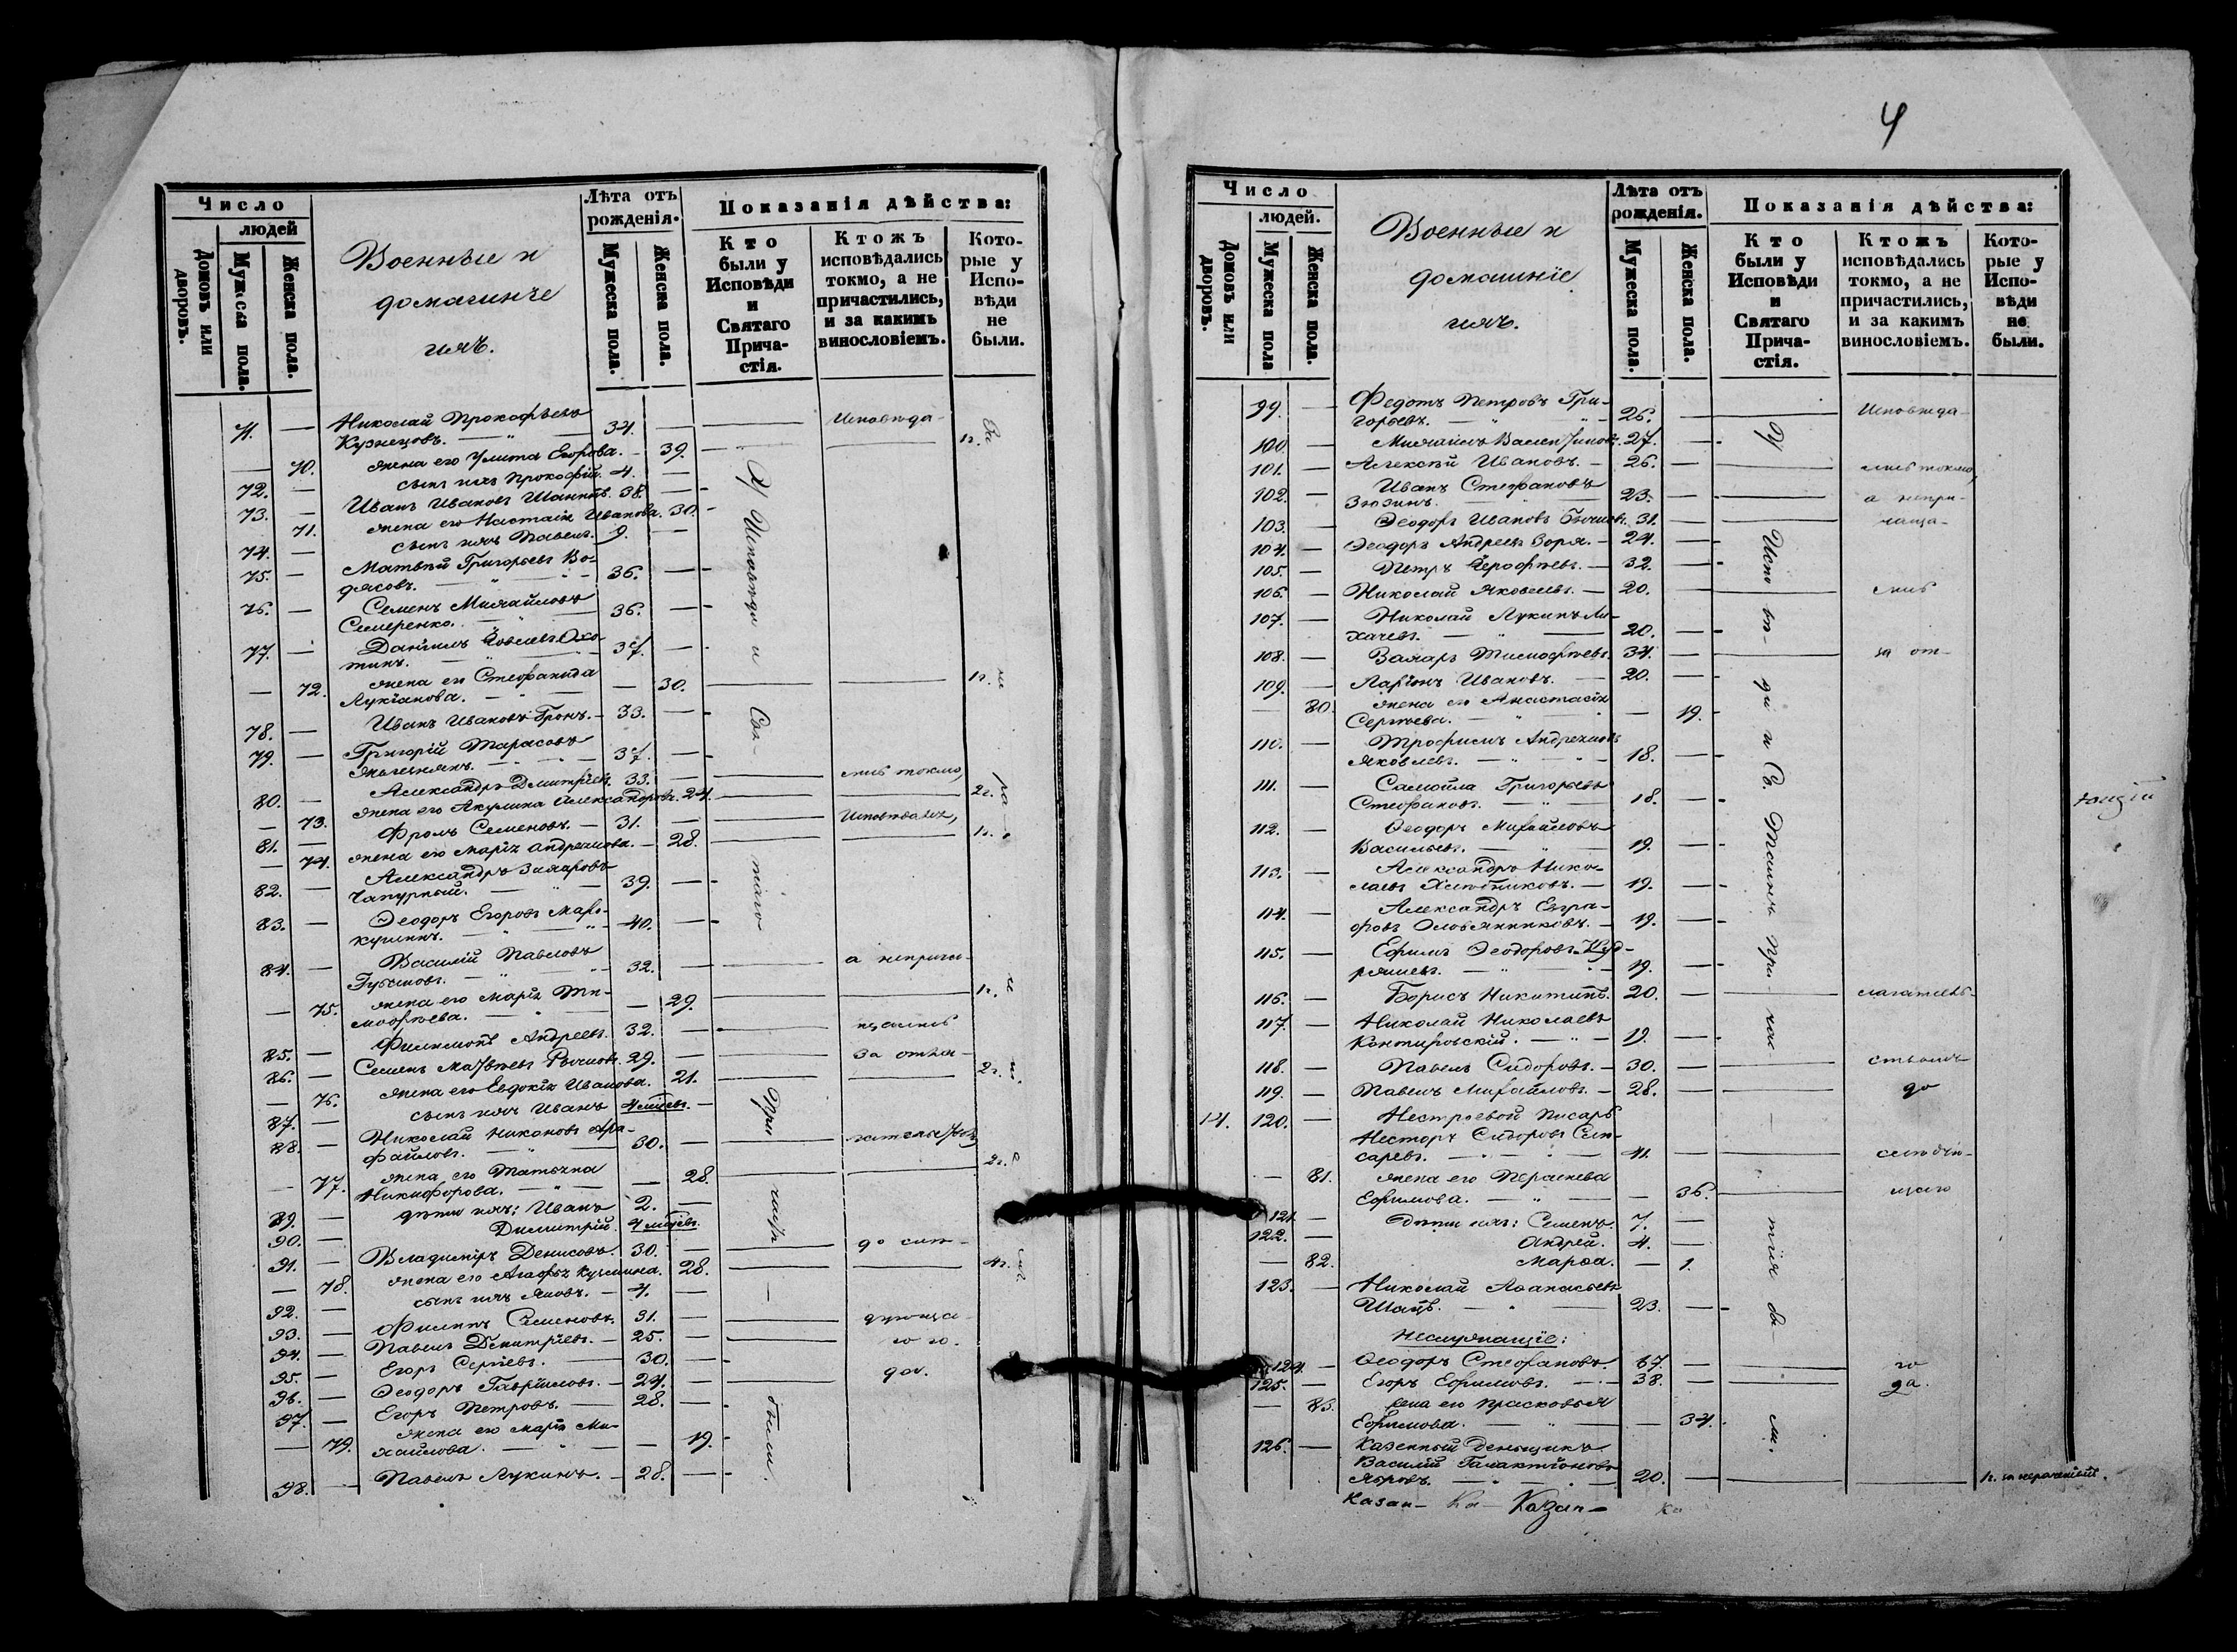 4
Число
людей
Домовъ или дворовъ.
Мужеска пола.
Женска пола.
Военные и
домашніе
ихъ.
Лѣта отъ
рожденія.
Мужеска пола.
Женска пола.
Показанія дѣйства:
Кто
были у
Исповѣди
и
Святаго
Прича-
стія.
Ктожъ
исповѣдались
токмо, а не
причастились,
и за какимъ
винословіемъ.
Кото-
рые у
Испо-
вѣди
не
были.
71. — Николай Прокофьевъ
Кузнецовъ. — 34. — Исповѣда-
— 70. жена его Улита Егорова. — 39. 1г.
72. — сынъ ихъ Прокофій. 4. —
73. — Иванъ Ивановъ 38. —
71. жена его Настасія Иванова. 30.
74. — сынъ ихъ Павелъ. 9. —
75. — Матвѣй Григорьевъ Во-
дясовъ. — 36. —
76. — Семенъ Михайловъ
Семеренко. 36. —
77. — Даніилъ Охо-
тинъ. — 37. —
— 72. жена его Стефанида
Лукіанова. — 30. 1г.
78. — Иванъ Ивановъ 33. —
79. — Григорій Тарасовъ
37. —
80. — Александръ Дмитріевъ. 33. — лись токмо,
— 73. жена его Акулина Александрова. 24. 2г.
81. — Фролъ Семеновъ. — 31. —
— 74. жена его Марія Андреянова. — 28. 1г.
82. — Александръ Захаровъ
Чапурный. — 39. —
83. — Ѳеодоръ Егоровъ Мар-
40. —
84. — Василій Павловъ
Губановъ. — 32. — а неприча-
— 75. жена его Марія Ти-
моѳѣева. — 29. 1г.
85. — Филимонъ Андреевъ. 32. — щались
86. — Семенъ Матвѣевъ 29. —
— 76. жена его Евдокія Иванова. 21. 2г.
87. — сынъ ихъ Иванъ 4 мѣсяц.
88. — Николай Никоновъ Ага-
фоновъ. — 30. —
— 77. жена его Татьяна
Никифорова. — 28. 2г.
89. — дѣти ихъ: Иванъ 2. —
90. — Димитрій.
91. — Владиміръ Денисовъ. 30. — до слѣ-
— 78. жена его Агафья Кузьмина. 28. 4г.
92. — сынъ ихъ Яковъ. — 4. —
93. — Филиппъ Семеновъ. 31. — дующа-
94. — Павелъ Дмитріевъ. — 25. — го го-
95. — Егоръ Сергѣевъ. — 30. —
96. — Ѳеодоръ Гавриловъ. — 24. — да.
97. — Егоръ Петровъ. — 28. —
— 79. жена его Марія Ми-
хайлова. — 19.
98. — Павелъ Лукинъ. — 28. —
У Исповѣди и Свя-
таго
При
част
были.
Число
людей.
Домовъ или дворовъ.
Мужеска пола
Женска пола.
Военные и
домашніе
ихъ.
Лѣта отъ
рожденія.
Мужеска пола.
Женска пола.
Показанія дѣйства:
Кто
были у
Исповѣди
и
Святаго
Прича-
стія.
Ктожъ
исповѣдались
токмо, а не
причастились,
и за какимъ
винословіемъ.
Кото-
рые у
Испо-
вѣди
не
были.
99. — Федотъ Петровъ Гри-
горьевъ. — 26. — Исповѣда-
100. Михаилъ Валентиновъ. 27. —
101. — Алексѣй Ивановъ. — 26. — лись токмо,
102. — Иванъ Стефановъ
Зюзинъ. — 23. — а непри-
103. — Ѳеодоръ Ивановъ 31. — чаща-
104. — Ѳеодоръ Андреевъ Зоря. — 24. —
105. — Петръ Ерофѣевъ. — 32. —
106. — Николай Яковлевъ. — 20. — лись
107. — Николай Лукинъ Ли-
хачевъ. — 20. —
108. — Захаръ Тимофѣевъ. 34. — за от-
109. — Ларіонъ Ивановъ. — 20. —
— 80. жена его Анастасія
Сергѣева. — 19.
110. — Трофимъ Андреяновъ
Яковлевъ. — 18. —
111. — Самойла Григорьевъ
Стефановъ. — 18. —
112. — Ѳеодоръ Михайловъ
Васильевъ. — 19. —
113. — Александръ Нико-
лаевъ Хлѣбниковъ. — 19. —
114. — Александръ Евгра-
фовъ Оловянниковъ. — 19. —
115. — Ефимъ Ѳеодоровъ Куд-
ряшевъ. — 19. —
116. — Борисъ Никитинъ. 20. — лагатель-
117. — Николай Николаевъ
19. —
118. — Павелъ Сидоровъ. — 30. — ствомъ
119. — Павелъ Михайловъ. — 28. — до
14. 120. — Нестроевой писарь
Несторъ Сидоровъ Слю-
саревъ. — 41. слѣдую-
— 81. жена его Пелагея
Ефимова. — 36. щаго
121. — Дѣти ихъ: Семенъ. 7. —
122. — Андрей. 4. —
— 82. Марѳа. — 1.
123. — Николай Аѳанасьевъ
23. —
Неслужащіе:
124. — Ѳеодоръ Стефановъ. 67. — го
125. — Егоръ Ефимовъ. — 38. — да.
— 83. жена его Прасковья
Ефимова. — 34.
126. — Казенный деньщикъ
Василій Галактіоновъ
20. — 1г. за нераченіемъ.
У
Испо
вѣ-
ди и Св. Таинъ При-
час
тія бы-
ли.
Казан- Ка- Казан- Ка